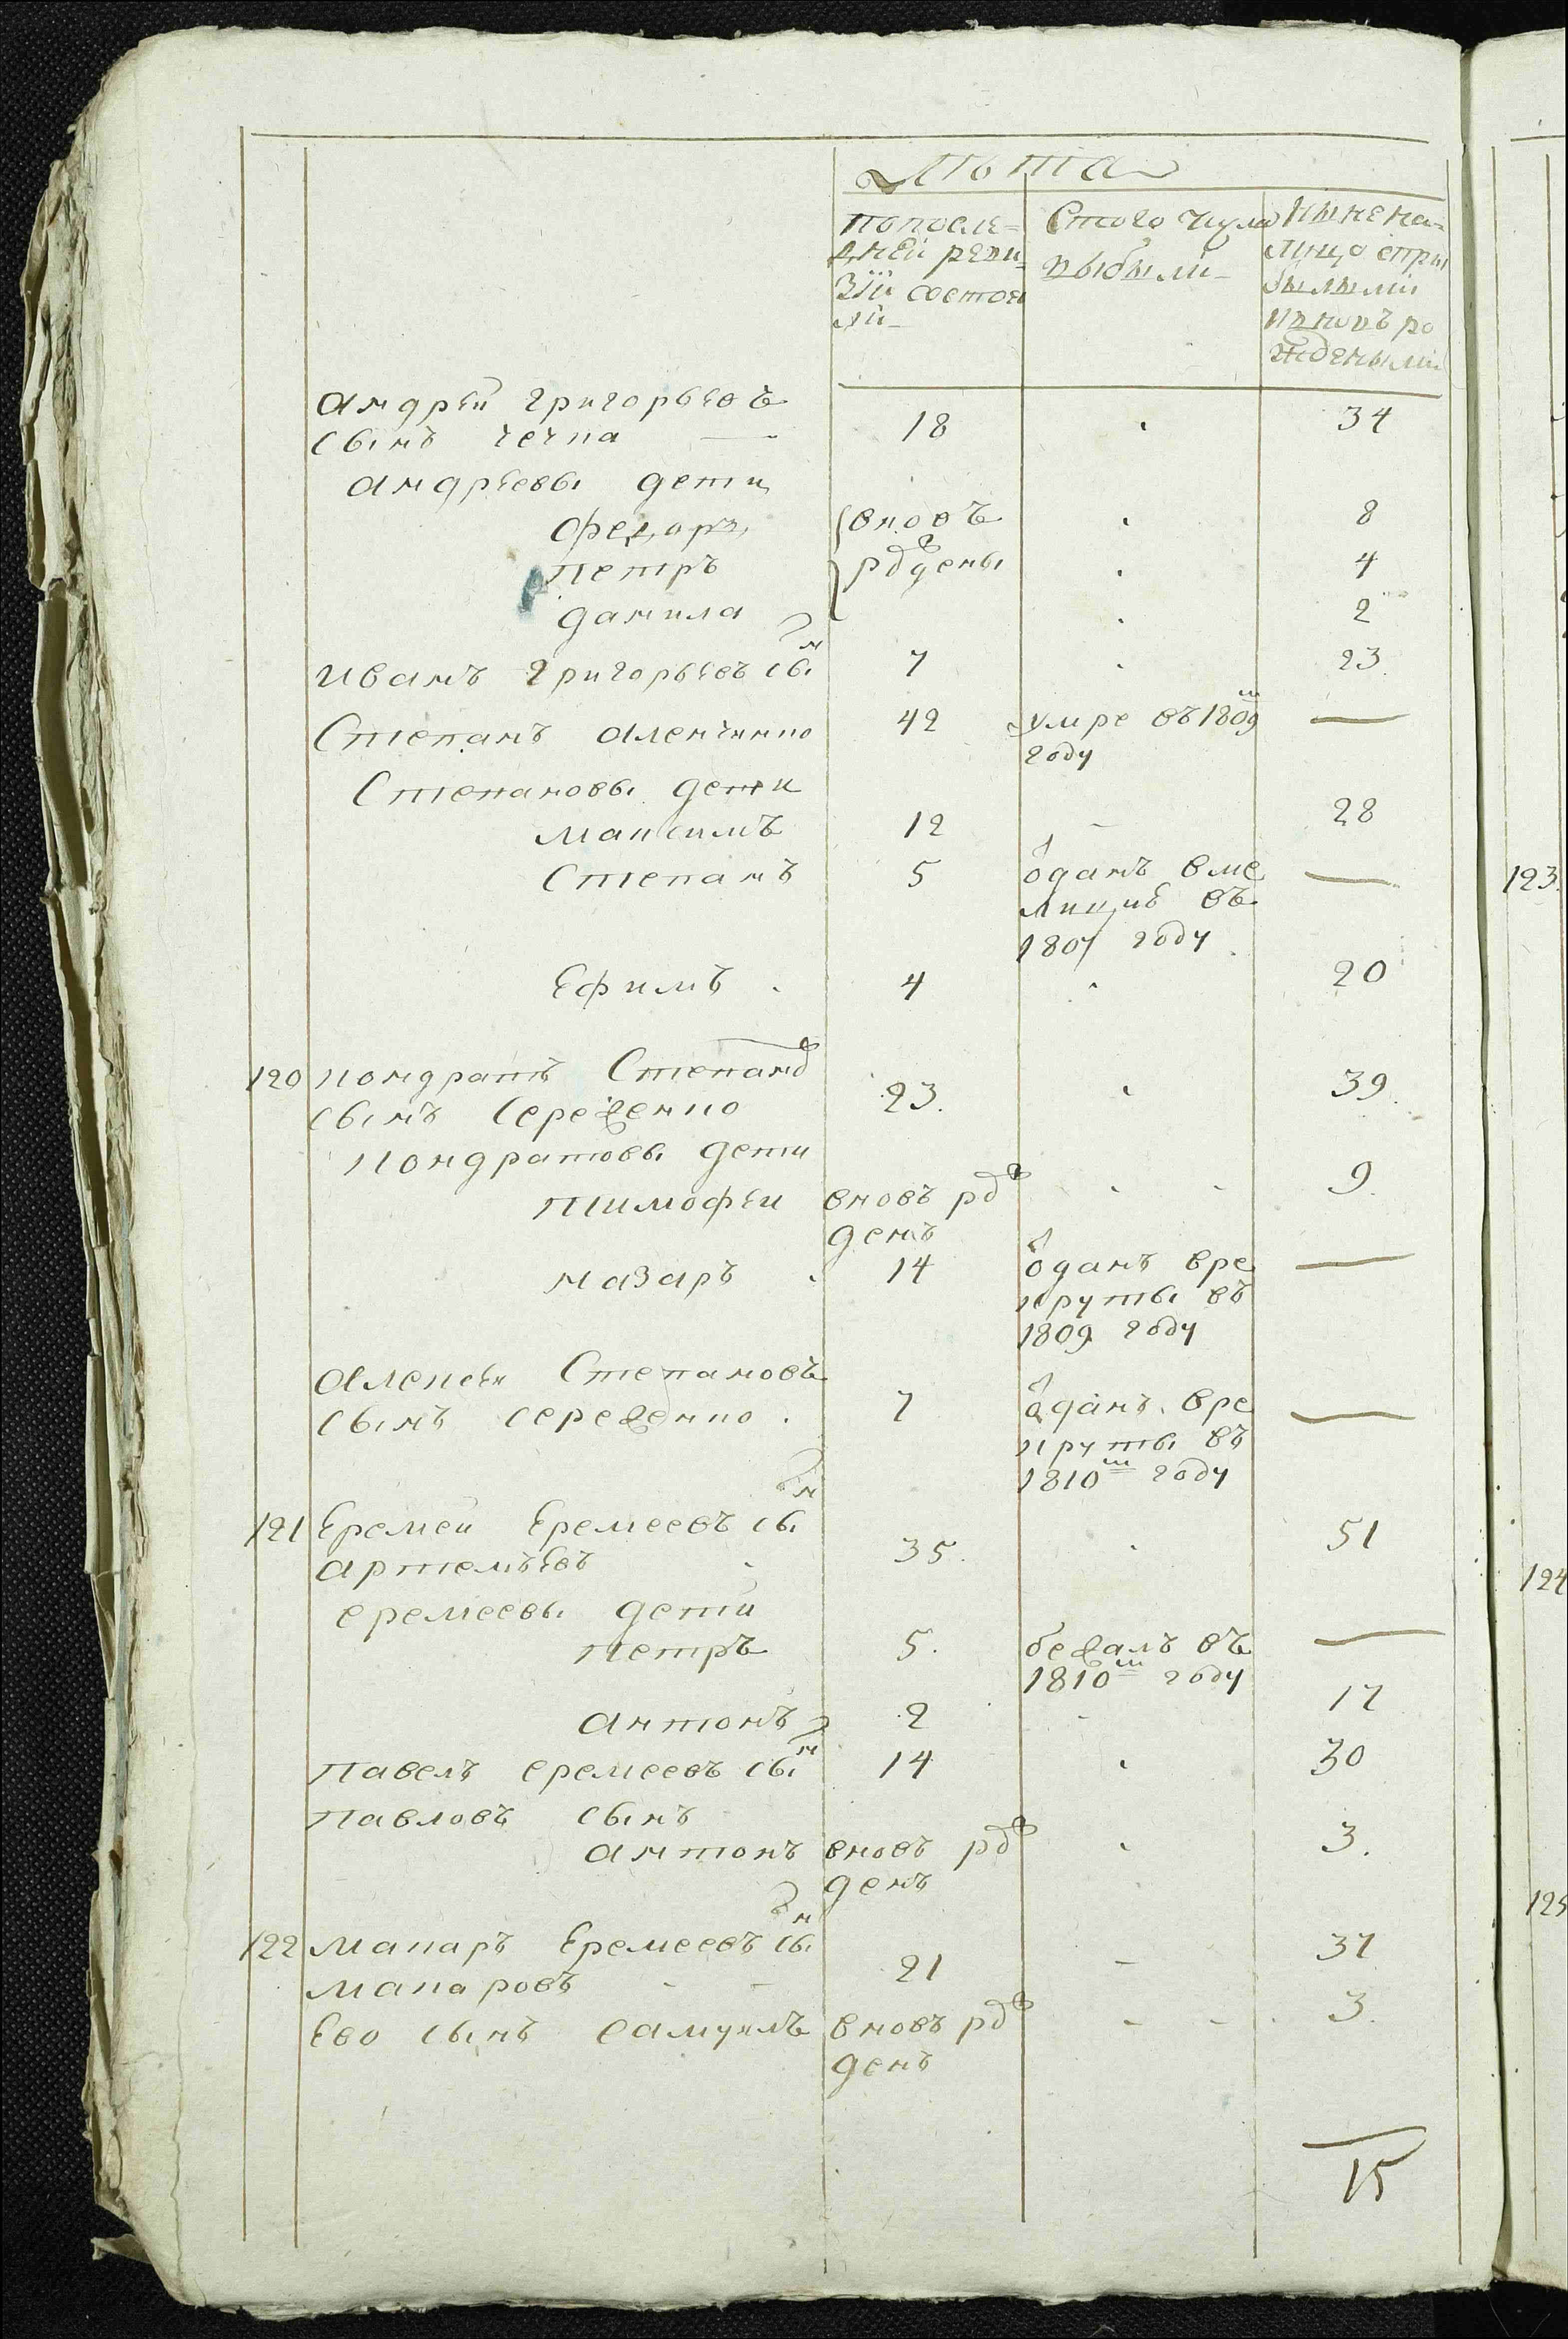 Лѣта
попосле=
дней реви
зiи состоя
ли
Стого числа
выбыли
Нынѣ на
лицо спри
былыми
ивновъ ро
ждеными
андрей григорьевъ
сынъ чечка 18 34
андреевы дети
Федоръ вновъ 8
петръ рождены 4
данила 2
иванъ григорьевъ сынъ 7 23
Степанъ аленченко 42 умре въ 1809м —
году
Степановы дети
максимъ 12 28
Степанъ 5 оданъ вме —
лицию въ
1807 году
Ефимъ 4 20
120 кондратъ Степановъ
сынъ середенко 23. 39.
кондратовы дети
тимофеи вновъ рож 9.
денъ
назаръ 14 оданъ вре —
круты въ
1809 году
алексеи Степановъ
сынъ середенко 7 оданъ вре —
круты въ
1810м году
121 Еремеи Еремеевъ сынъ
артемъевъ 35. 51
еремеевы дети
петръ 5. бежалъ въ —
1810м году
антонъ 2 17
павелъ еремеевъ сынъ 14 30
павловъ сынъ
антонъ вновъ рож 3.
денъ
122 макаръ Еремеевъ сынъ
макаровъ 21 37
Ево сынъ самуилъ вновъ рож 3.
денъ
15
123.
124
125